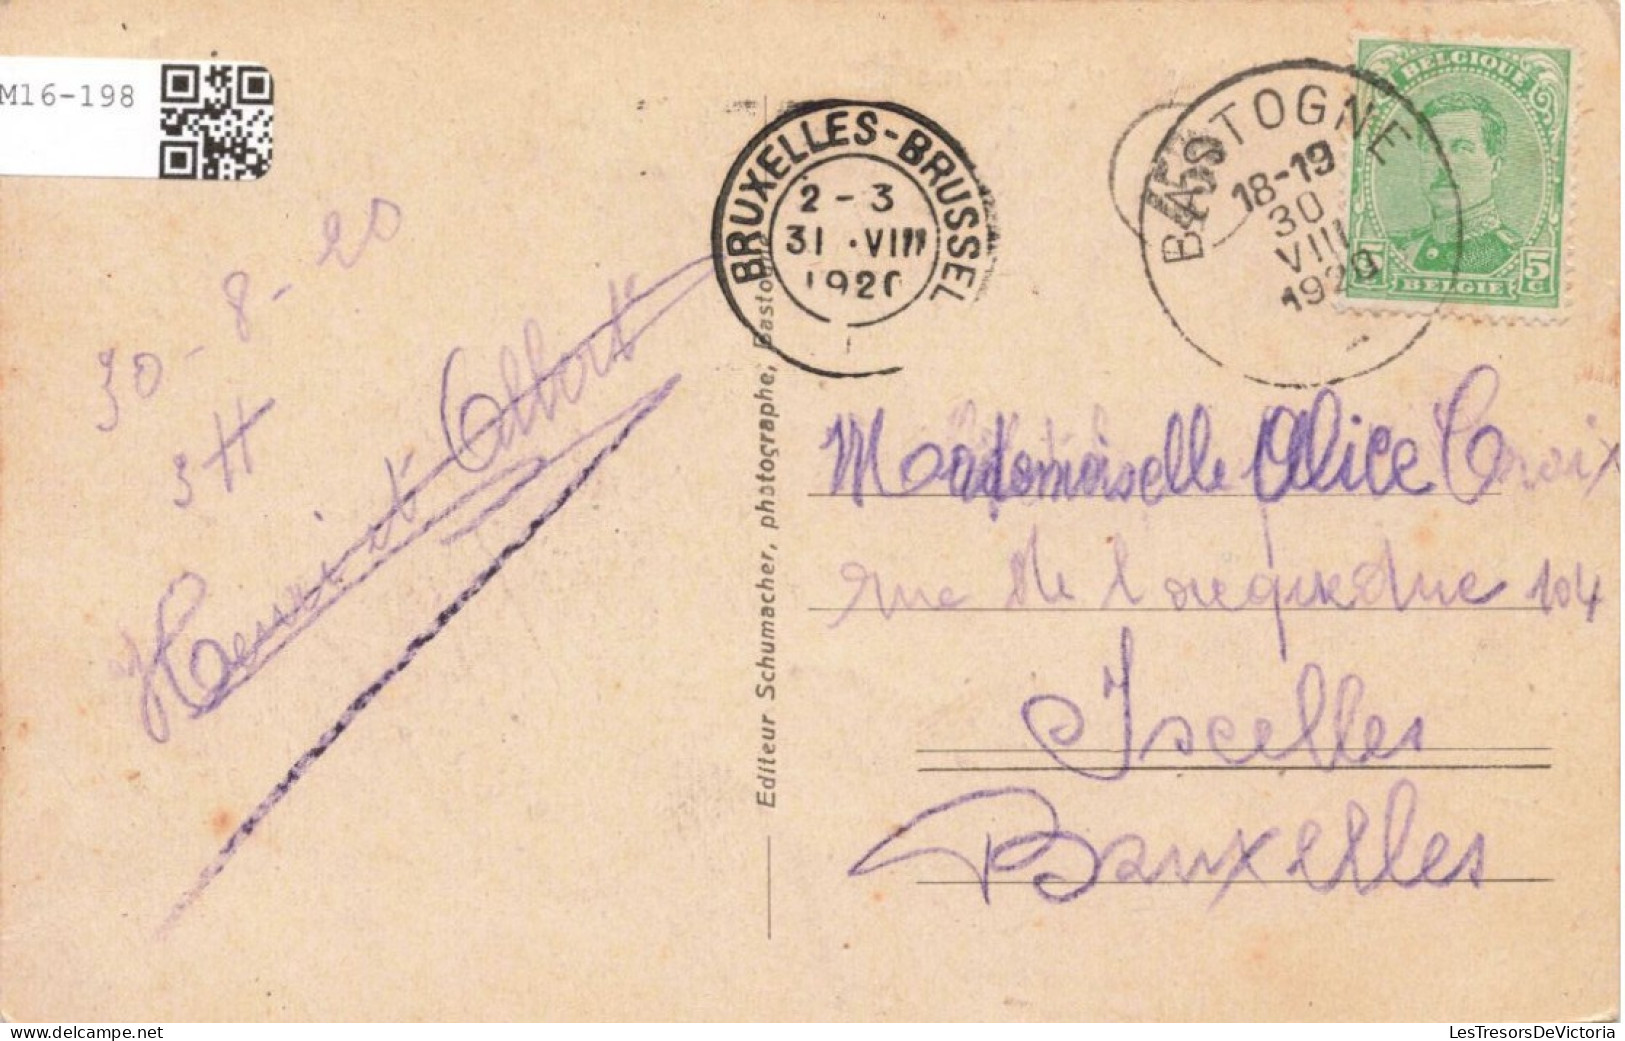 M16-198
30-8-20
3H
Henriet Albert
Editeur Schumacher, photographe, Bastogne
BRUXELLES-BRUSSEL
2-3
31 · VIII
1920
BASTOGNE
18-19
30
VIII
1920
BELGIQUE
5 5
c
BELGIE
Mademoiselle Alice Croix
rue de l'aqueduc 104
Ixelles
Bruxelles
LesTresorsDeVictoria